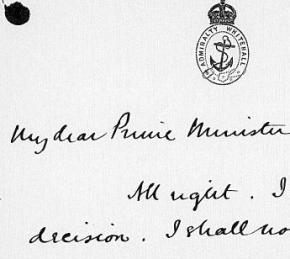 ADMIRALTY WHITEHALL
My dear Prime Minister
All right. I
decision. I shall no